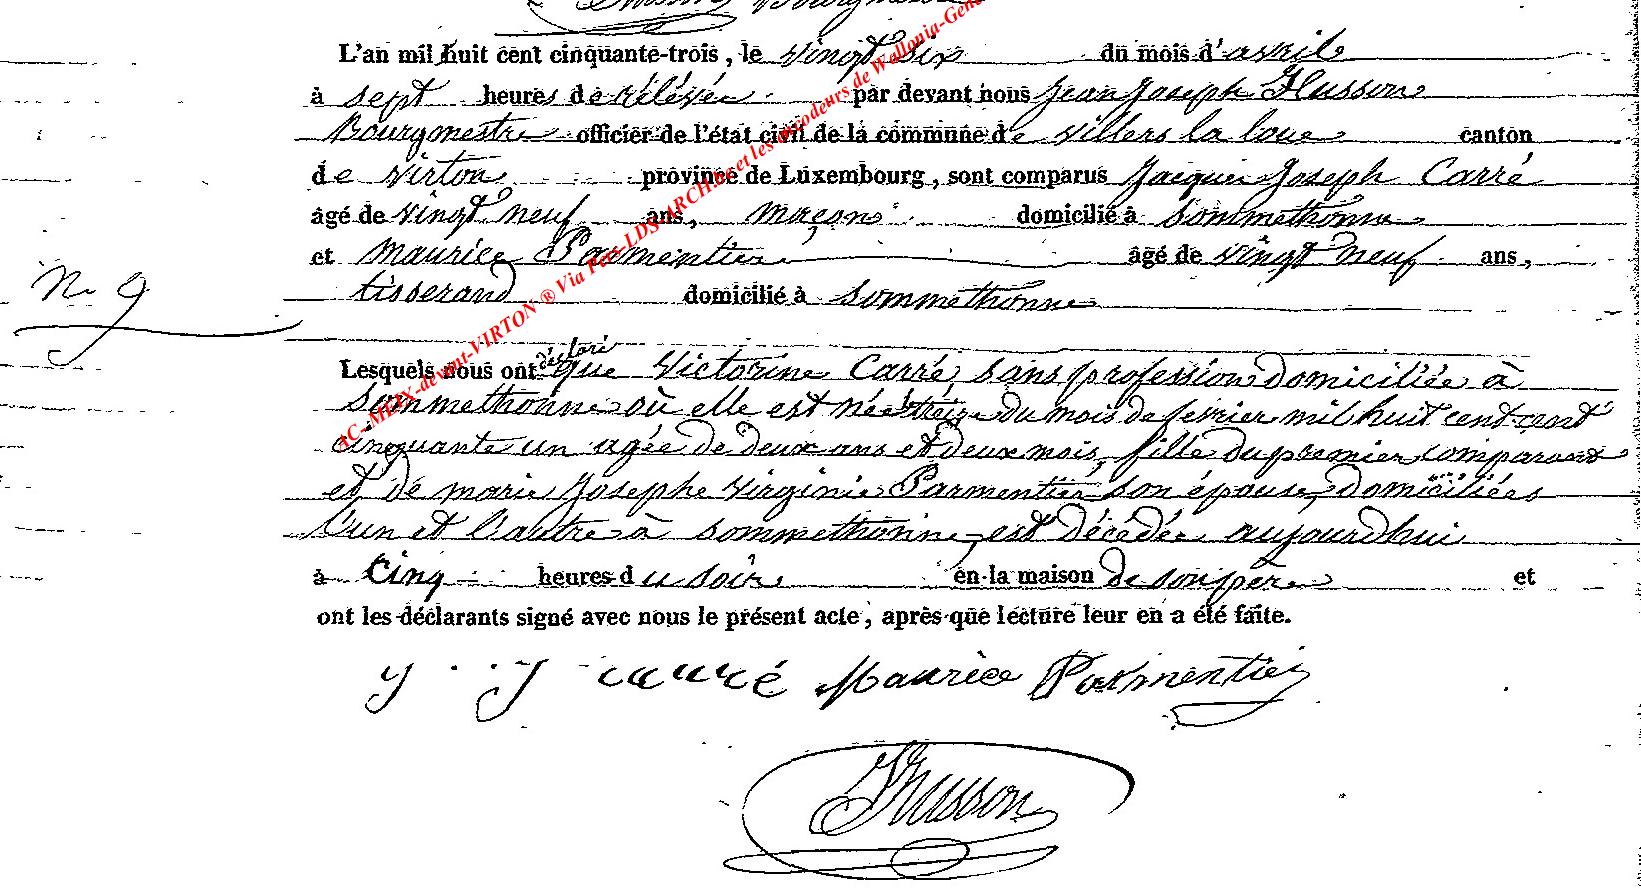 L'an mil huit cent cinquante-trois, le vingt six du mois d'avril
à sept heures de rélévée par devant nous Jean Joseph Husson
Bourgmestre officier de l'état civil de la commune de villers la loue canton
de virton province de Luxembourg, sont comparus Jacques Joseph Carré
âgé de vingt neuf ans, maçon domicilié à Sommethonne
et Maurice Parmentier âgé de vingt neuf ans,
N. 9
tisserand domicilié à Sommethonne
Lesquels nous ont déclaré que Victorine Carré, sans profession domiciliée à
Sommethonne où elle est née le treize du mois de fevrier mil huit cent cent
cinquante un agée de deux ans et deux mois, fille du premier comparant
et de marie Josephe virginie Parmentier son épouse, domiciliées
l'un et l'autre à Sommethonne, est décédée aujourdhui
à Cinq heures du soir en la maison de son père et
ont les déclarants signé avec nous le présent acte, après que lecture leur en a été faite.
J. J carré Maurice Parmentier
Husson
AC-MEIX-devant-VIRTON ® Via Pat-LDS-ARCH.be et les encodeurs de Wallonia-Gen